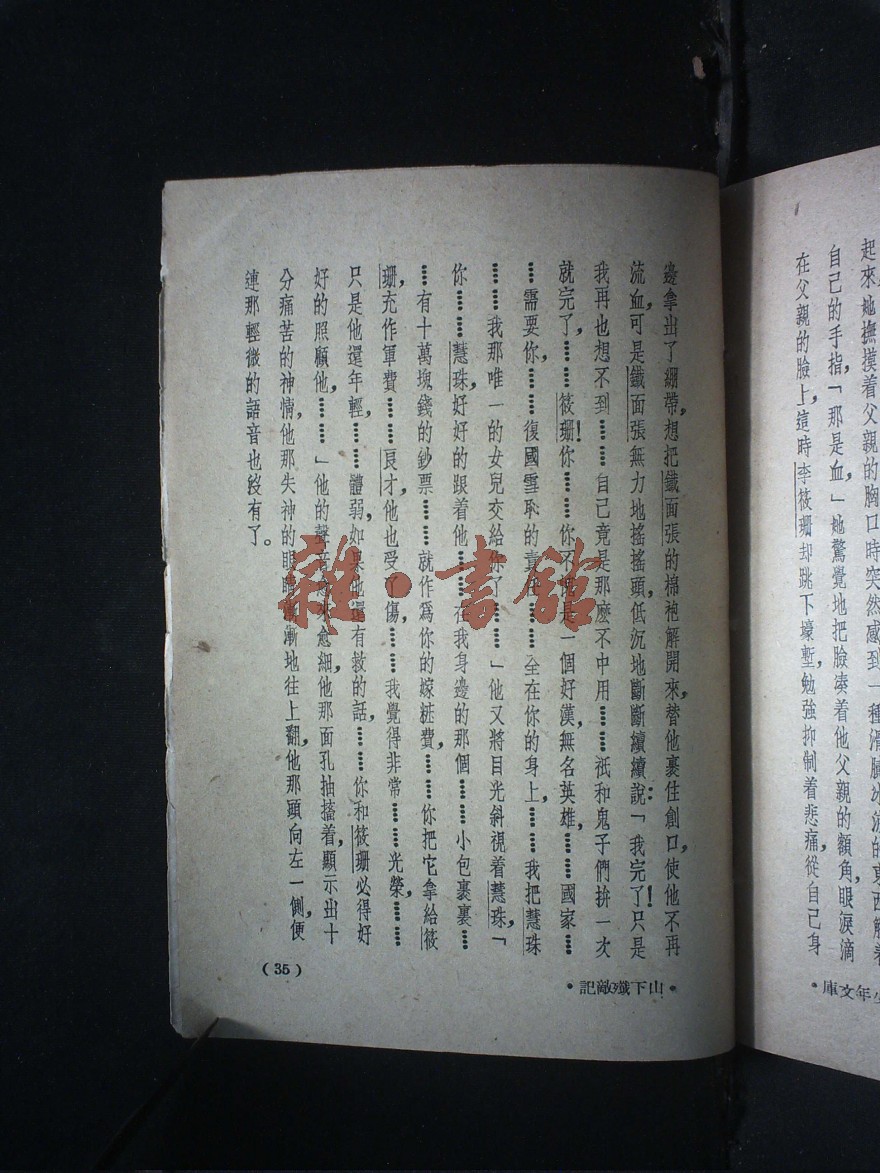 起來，她撫摸着父親的胸口時突然感到一種滑膩冰涼的東西
自己的手指，「那是血」她驚覺地把臉湊着他父親的額角，眼淚滴
在父親的臉上，這時李筱珊却跳下壕塹，勉強抑制着悲痛，從自己身
少年文庫·
邊拿出了綳帶，想把鐵面張的棉袍解開來，替他裹住創口，使他不再
流血，可是鐵面張無力地搖搖頭，低沉地斷斷續續說：「我完了！只是
我再也想不到……自己竟是那麽不中用……祇和鬼子們拚一次
就完了，……筱珊！你……你不愧是一個好漢，無名英雄，……國家……
……需要你，……復國雪恥的責任……全在你的身上，……我把慧珠
……我那唯一的女兒交給你了……」他又將目光斜視着慧珠，「
你……慧珠，好好的跟着他……在我身邊的那個……小包裹裏……
……有十萬塊錢的鈔票……就作爲你的嫁粧費，……你把它拿給筱
珊充作軍費……良才，他也受了傷，……我覺得非常……光榮，……
只是他還年輕，……體弱，如果他還有救的話，……你和筱珊必得好
好的照顧他，……」他的聲音愈細，他那面孔抽搐着，顯示出十
分痛苦的神情，他那失神的眼睛漸漸地往上翻，他那頭向左一側，便
連那輕微的語音也沒有了。
·山下殲敵記·
(35)
雜·書館